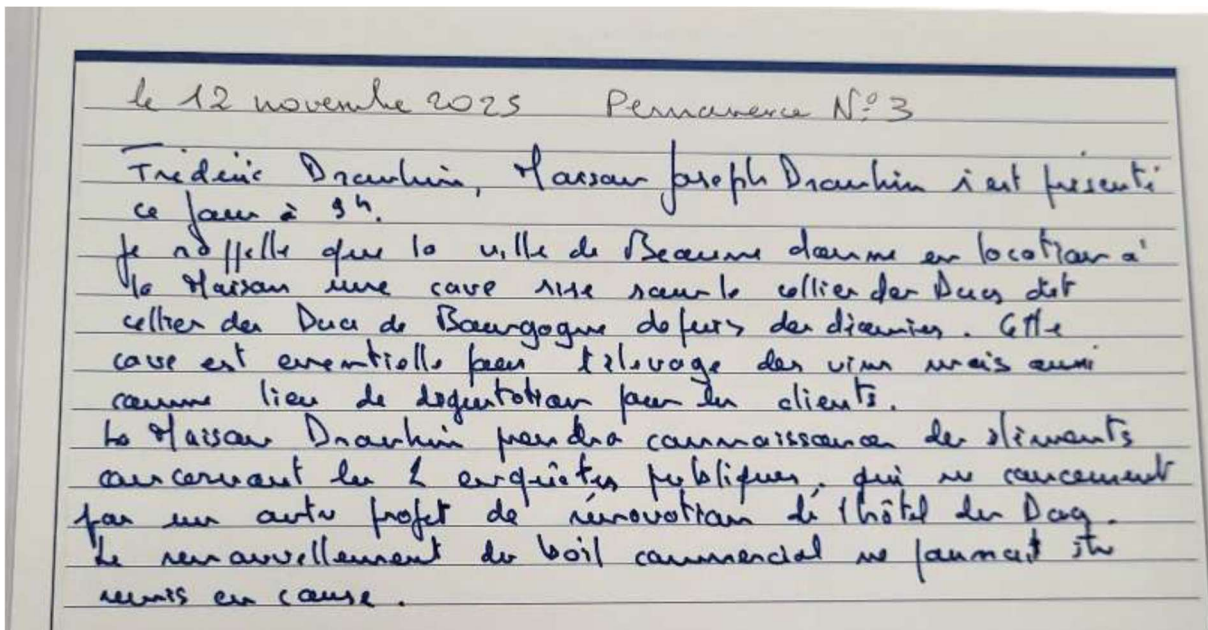 le 12 novembre 2025 Permanence N°3
Frédéric Drouhin, Maison Joseph Drouhin s'est présenté
ce jour à 9h.
Je rappelle que la ville de Beaune donne en location à
la Maison une cave sise sous le cellier des Ducs dit
cellier des Ducs de Bourgogne depuis des décennies. Cette
cave est essentielle pour l'élevage des vins mais aussi
comme lieu de dégustation pour les clients.
La Maison Drouhin prendra connaissance des éléments
concernant les 2 enquêtes publiques, qui ne concernent
pas un autre projet de rénovation de l'hôtel des Ducs.
Le renouvellement du bail commercial ne pourrait être
remis en cause.